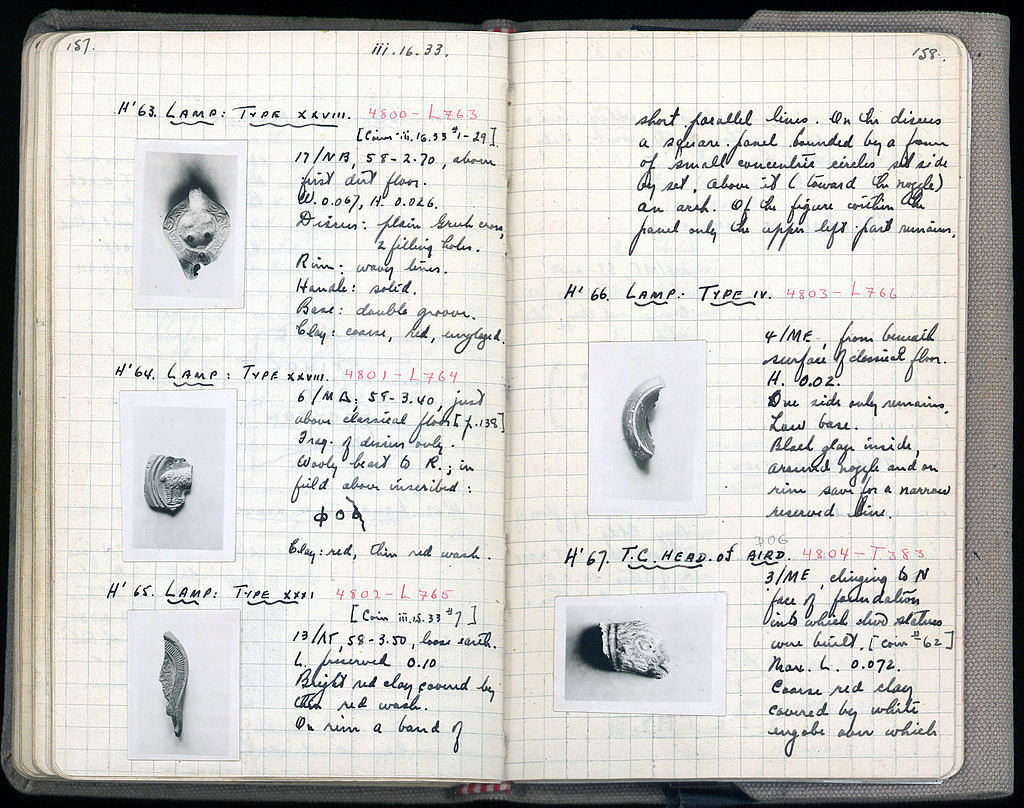 157.
iii.16.33.
H'63. LAMP: TYPE XXVIII. 4800-L763
[Coin iii.16.33 #1-29].
17/NB, 58-2.70, above
first dirt floor.
W. 0.067, H. 0.026.
Discus: plain Greek cross,
2 filling holes.
Rim: wavy lines.
Handle: solid.
Base: double groove.
Clay: coarse, red, unglazed.
H'64. LAMP: TYPE XXVIII. 4801-L764
6/MB; 58-3.40, just
above classical floor [p.138]
Frag. of discus only.
Wooly beast to R.; in
field above inscribed:
ΦΟ
Clay: red, thin red wash.
H'65. LAMP: TYPE XXXI 4802-L765
[Coin iii.15.33 #7]
13/, 58-3.50, loose earth.
L. preserved 0.10
Bright red clay covered by
thin red wash.
On rim a band of
158.
short parallel lines. On the discus
a square panel bounded by a frame
of small concentric circles set side
by set, above it (toward the nozzle)
an arch. Of the figure within the
panel only the upper left part remains.
H'66. LAMP: TYPE IV. 4803-L766
4/ME, from beneath
surface of classical floor.
H. 0.02.
One side only remains.
Low base.
Black glaze inside,
around nozzle and on
rim save for a narrow
reserved line.
DOG
H'67. T.C. HEAD of BIRD. 4804-T383
3/ME, clinging to N
face of foundation
into which two statues
were built. [coin #62]
Max. L. 0.072.
Coarse red clay
covered by white
engobe over which